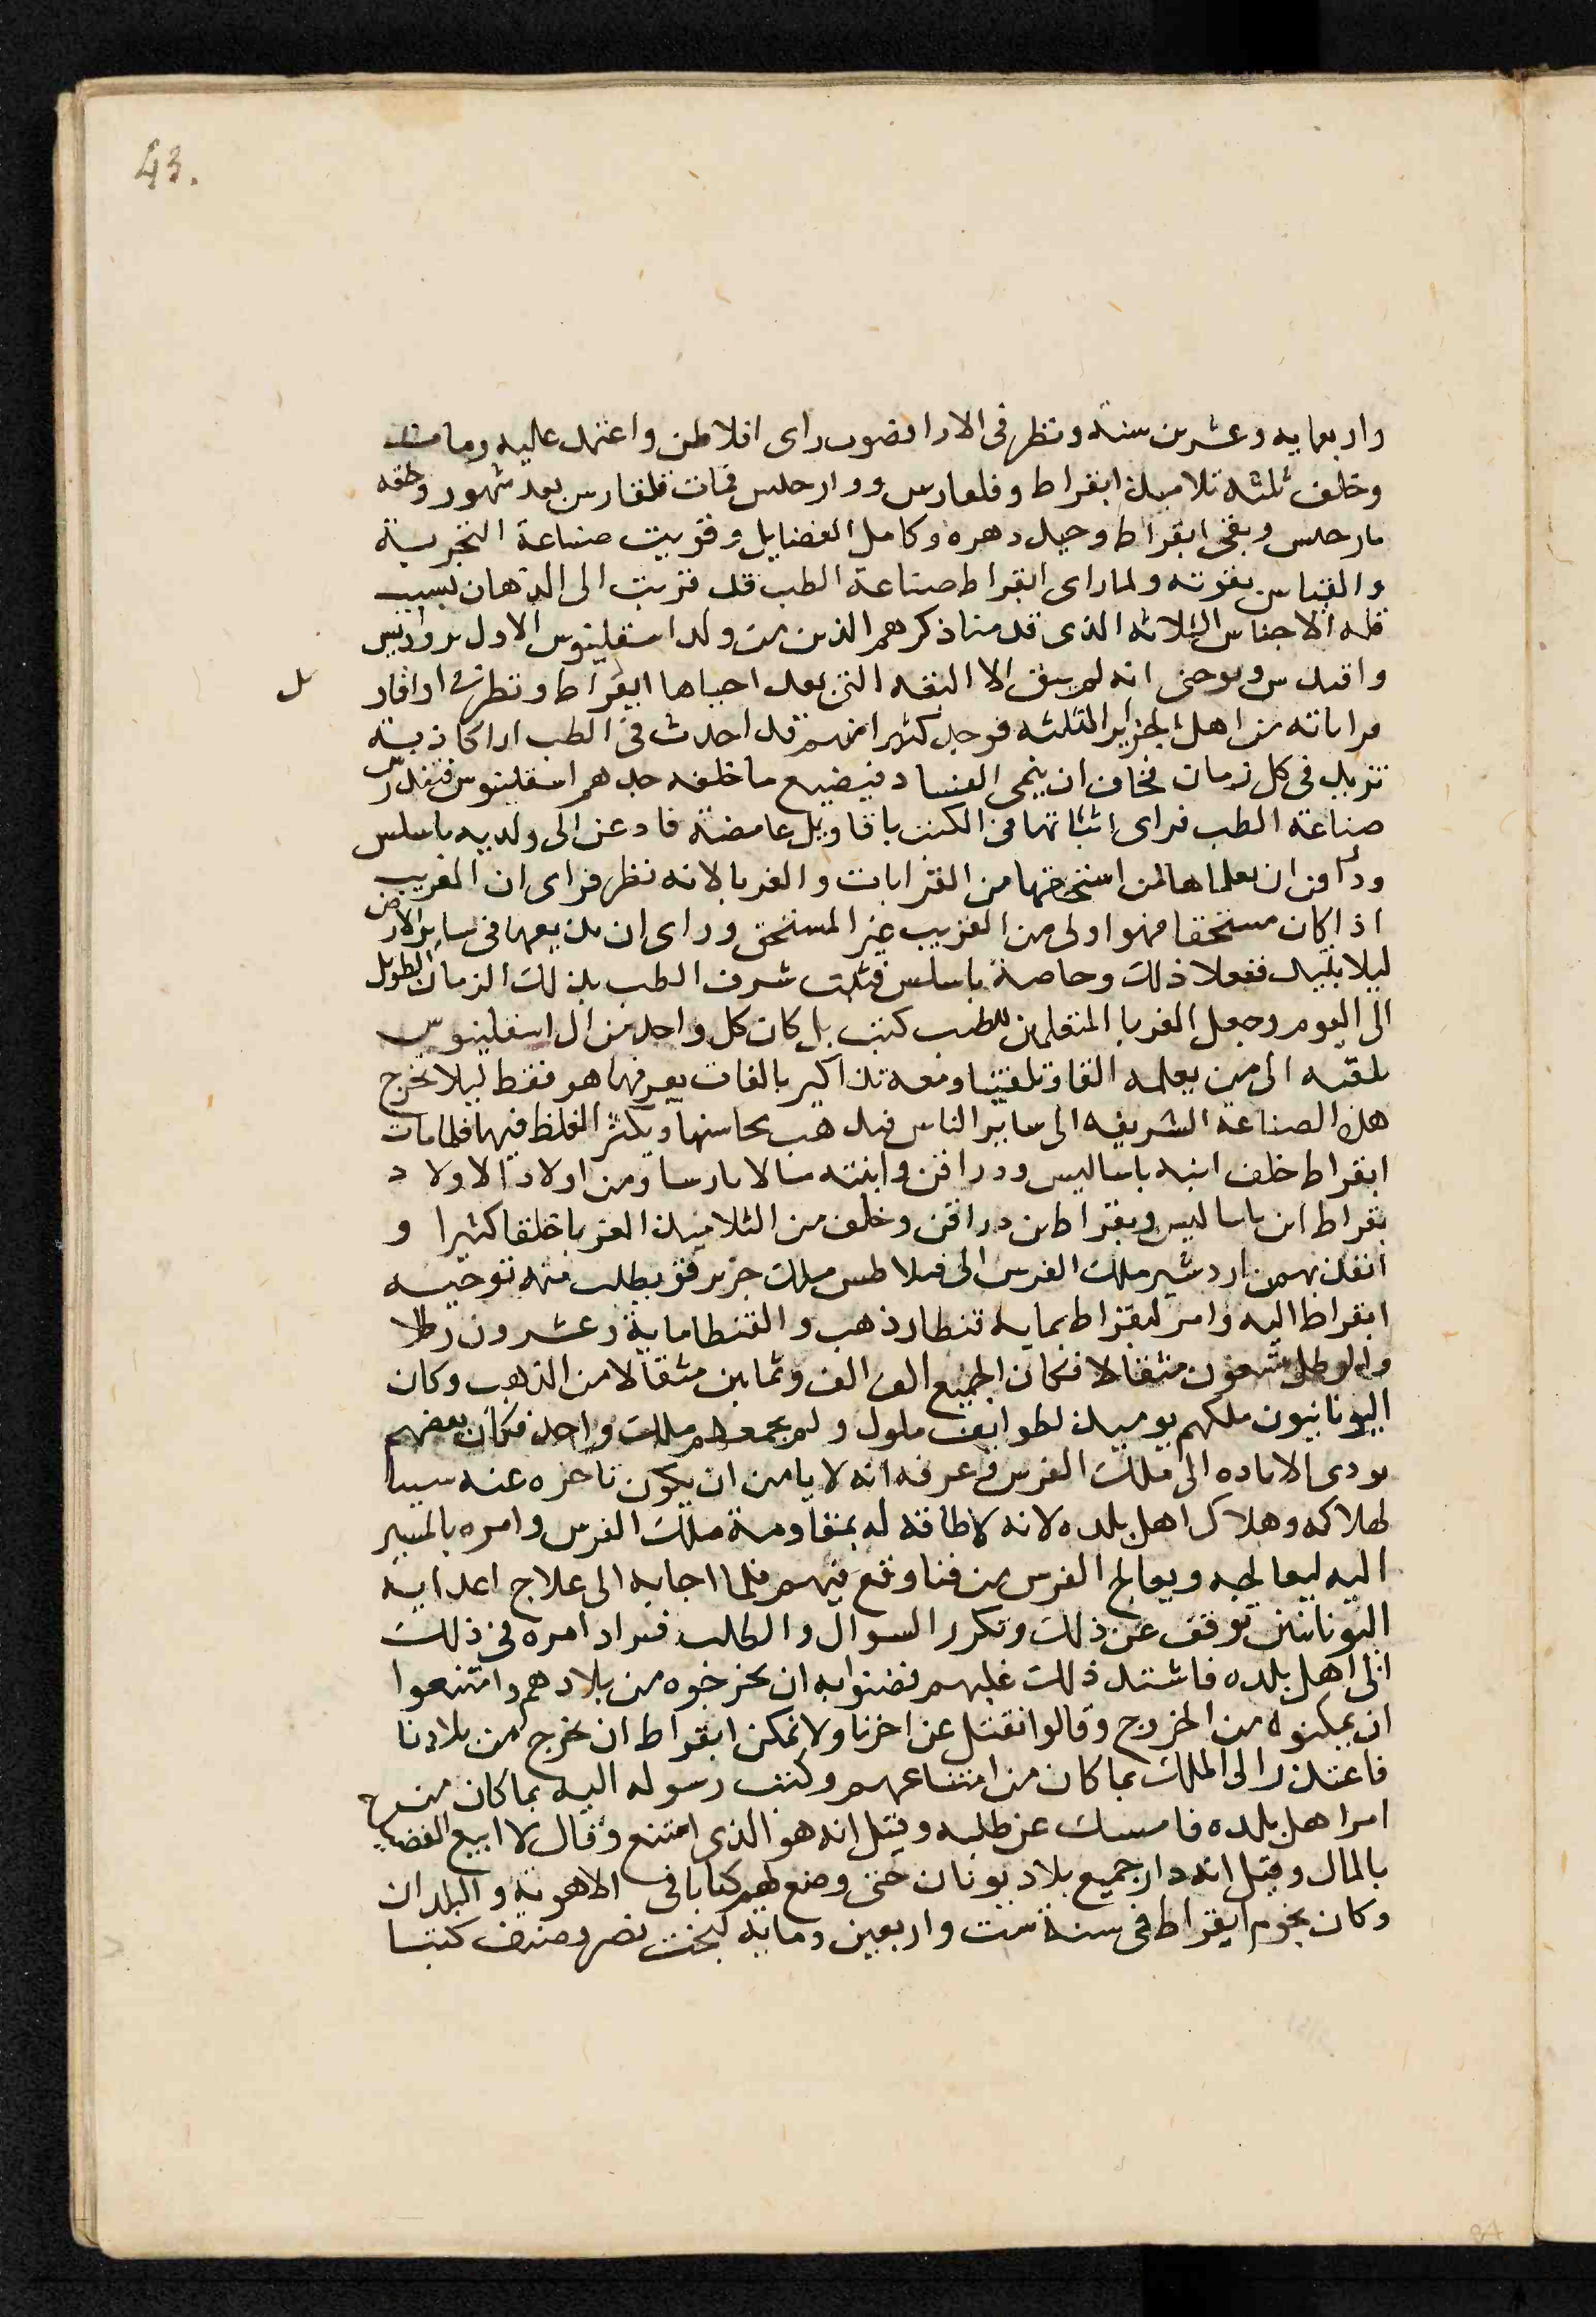 43.
واربعمايه وعشرين سنة ونظر فى الارا فصوب راى افلاطن واعتمد عليه ومات
وخلف ثلثه تلاميذ ابقراط وفلعارس ووارحلس فمات فلغارس بعد شهور ولحقه
مارحلس وبقى ابقراط وحيد دهره وكامل الفضايل وقويت صناعة التجربة
والقياس بقوته ولما راى ابقراط صناعة الطب قد قربت الى الذهاب بسبب
قله الاجناس الثلاثه الذى قدمنا ذكرهم الذين من ولد اسقلينوس الاول برواديس
واقيدس وبوحى انه لم يبق الا البقه التى بعد احياها ابقراط ونظر فى اوافار
قراباته من اهل الجزاير الثلثه فوجد كثيرا منهم قد احدث فى الطب ارا كاذبة
تزيد فى كل زمان فخاف ان ينمى الفساد فيضيع ما خلفه جدهم اسقلينوس فتندرس
صناعة الطب فراى اثباتها فى الكتب باقاويل غامضة فادعن الى ولديه ماسلس
ودراقن ان يعلماها لمن استحقها من القرابات والغربا لانه نظر فراى ان الغريب
اذا كان مستحقا فهو اولى من القريب غير المستحق وراى ان يذيعها فى ساير الارض
ليلا تبيد ففعلا ذلك وخاصة باسلس فثبت شرف الطب بذلك الزمان الطويل
الى اليوم وجعل الغربا المتعلمين للطب كتب بل كان كل واحد من ال اسقلينوس
يلقيه الى من يعلمه القا وتلقينا ومعه تذاكير بالغات يعرفها هو فقط ليلا تخرج
هذه الصناعة الشريفه الى ساير الناس فيذهب محاسنها ويكثر الغلظ فيها فلما مات
ابقراط خلف ابنيه باساليس ودراقن وابنته مالا بارسا ومن اولاد الاولاد
بقراط ابن باساليس وبقراط بن دراقن وخلف من التلاميذ الغربا خلقا كثيرا و
انفذ بهمن اردشير ملك الفرس الى فيلاطس ملك جزيرة قو يطلب منه توجيه
ابقراط اليه وامر لبقراط بمايه قنطار ذهب والقنطار ماية وعشرون رطلا
والرطل تسعون مثقالا فكان الجميع الف الف وثمانين مثقالا من الذهب وكان
اليونانيون ملكهم يوميذ لطوايف ملوك ولم يجمعهم ملك واحد فكان بعضهم
يودى الاتاوه الى ملك الفرس فعرفه انه لا يامن ان يكون تاخره عنه سببا
لهلاكه وهلاك اهل بلده لانه لا طاقة له بمقاومة ملك الفرس وامره بالمسير
اليه ليعالجه ويعالج الفرس من فنا وقع فيهم فلما اجابه الى علاج اعدايه
اليونانيين توقف عن ذلك وتكرر السوال والطلب فيراد امره فى ذلك
الى اهل بلده فاشتد ذلك عليهم فضنوا به ان يخرجوه من بلادهم وامتنعوا
ان يمكنوه من الخروج وقالوا نقتل عن اخرنا ولا نمكن ابقراط ان يخرج من بلادنا
فاعتذر الى الملك بما كان من امتناعهم وكتب رسوله اليه بما كان من
امر اهل بلده فامسك عن طلبه وقيل انه هو الذى امتنع وقال لا ابيع الفضيله
بالمال وقيل انه دار جميع بلاد يونان حتى وضع لهم كتابا فى الاهوية والبلدان
وكان نجوم ابقراط فى سنة ست واربعين وماية لبخت نصر وصنف كتبا